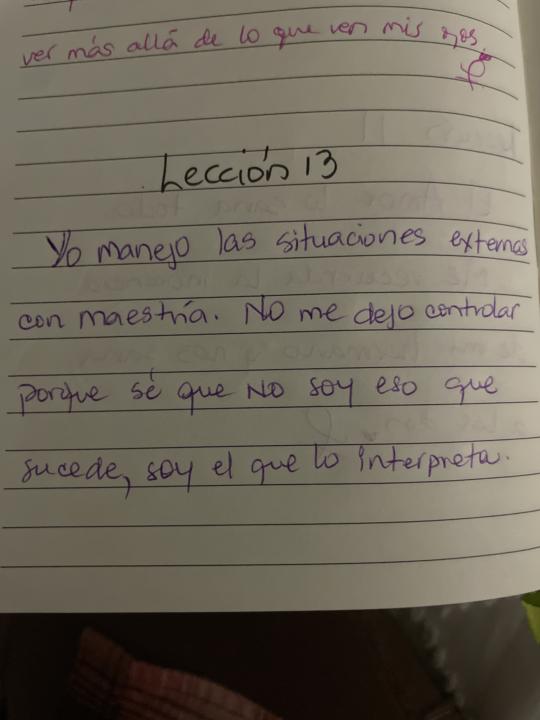 ver más allá de lo que ven mis ojos.
Lección 13
Yo manejo las situaciones externas
con maestría. NO me dejo controlar
porque sé que NO soy eso que
sucede, soy el que lo interpreta.